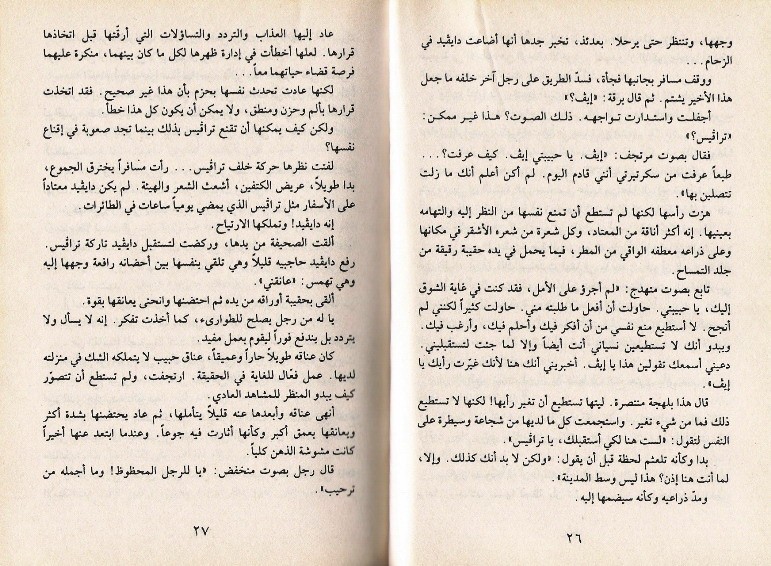 وجهها، وتنتظر حتى يرحلا. بعدئذ، تخبر جدها أنها أضاعت دايڤيد في
الزحام...
ووقف مسافر بجانبها فجأة، فسدّ الطريق على رجل آخر خلفه ما جعل
هذا الأخير يشتم. ثم قال برقة: «إيڤ؟»
أجفلت واستدارت تواجهه. ذلك الصوت؟ هذا غير ممكن:
«تراڤيس؟»
فقال بصوت مرتجف: «إيڤ. يا حبيبتي إيڤ. كيف عرفت؟...
طبعاً عرفت من سكرتيرتي أنني قادم اليوم. لم أكن أعلم أنك ما زلت
تتصلين بها».
هزت رأسها لكنها لم تستطع أن تمنع نفسها من النظر إليه والتهامه
بعينيها. إنه أكثر أناقة من المعتاد، وكل شعرة من شعره الأشقر في مكانها
وعلى ذراعه معطفه الواقي من المطر، فيما يحمل في يده حقيبة رقيقة من
جلد التمساح.
تابع بصوت متهدج: «لم أجرؤ على الأمل، فقد كنت في غاية الشوق
إليك، يا حبيبتي. حاولت أن أفعل ما طلبته مني. حاولت كثيراً لكنني لم
أنجح. لا أستطيع منع نفسي من أن أفكر فيك وأحلم فيك، وأرغب فيك.
ويبدو أنك لا تستطيعين نسياني أنت أيضاً وإلا لما جئت لتستقبليني.
دعيني أسمعك تقولين هذا يا إيڤ. أخبريني أنك هنا لأنك غيّرت رأيك يا
إيڤ».
قال هذا بلهجة منتصرة. ليتها تستطيع أن تغير رأيها! لكنها لا تستطيع
ذلك فما من شيء تغير. واستجمعت كل ما لديها من شجاعة وسيطرة على
النفس لتقول: «لست هنا لكي أستقبلك، يا تراڤيس».
بدا وكأنه تلعثم لحظة قبل أن يقول: «ولكن لا بد أنك كذلك. وإلا،
لما أنت هنا إذن؟ هذا ليس وسط المدينة».
ومدّ ذراعيه وكأنه سيضمها إليه.
٢٦
عاد إليها العذاب والتردد والتساؤلات التي أرقّتها قبل اتخاذها
قرارها. لعلها أخطأت في إدارة ظهرها لكل ما كان بينهما، منكرة عليهما
فرصة قضاء حياتهما معاً...
لكنها عادت تحدث نفسها بحزم بأن هذا غير صحيح. فقد اتخذت
قرارها بألم وحزن ومنطق، ولا يمكن أن يكون كل هذا خطأ.
ولكن كيف يمكنها أن تقنع تراڤيس بذلك بينما تجد صعوبة في إقناع
نفسها؟
لفتت نظرها حركة خلف تراڤيس... رأت مسافراً يخترق الجموع،
بدا طويلاً، عريض الكتفين، أشعث الشعر والهيئة. لم يكن دايڤيد معتاداً
على الأسفار مثل تراڤيس الذي يمضي يومياً ساعات في الطائرات.
إنه دايڤيد! وتملكها الارتياح.
ألقت الصحيفة من يدها، وركضت لتستقبل دايڤيد تاركة تراڤيس.
رفع دايڤيد حاجبيه قليلاً وهي تلقي بنفسها بين أحضانه رافعة وجهها إليه
وهي تهمس: «عانقني».
ألقى بحقيبة أوراقه من يده ثم احتضنها وانحنى يعانقها بقوة.
يا له من رجل يصلح للطوارىء، كما أخذت تفكر. إنه لا يسأل ولا
يتردد بل يندفع فوراً ليقوم بعمل مفيد.
كان عناقه طويلاً حاراً وعميقاً، عناق حبيب لا يتملكه الشك في منزلته
لديها. عمل فعّال للغاية في الحقيقة. ارتجفت، ولم تستطع أن تتصوّر
كيف يبدو المنظر للمشاهد العادي.
أنهى عناقه وأبعدها عنه قليلاً يتأملها، ثم عاد يحتضنها بشدة أكثر
ويعانقها بعمق أكبر وكأنها أثارت فيه جوعاً. وعندما ابتعد عنها أخيراً
كانت مشوشة الذهن كلياً.
قال رجل بصوت منخفض: «يا للرجل المحظوظ! وما أجمله من
ترحيب».
٢٧